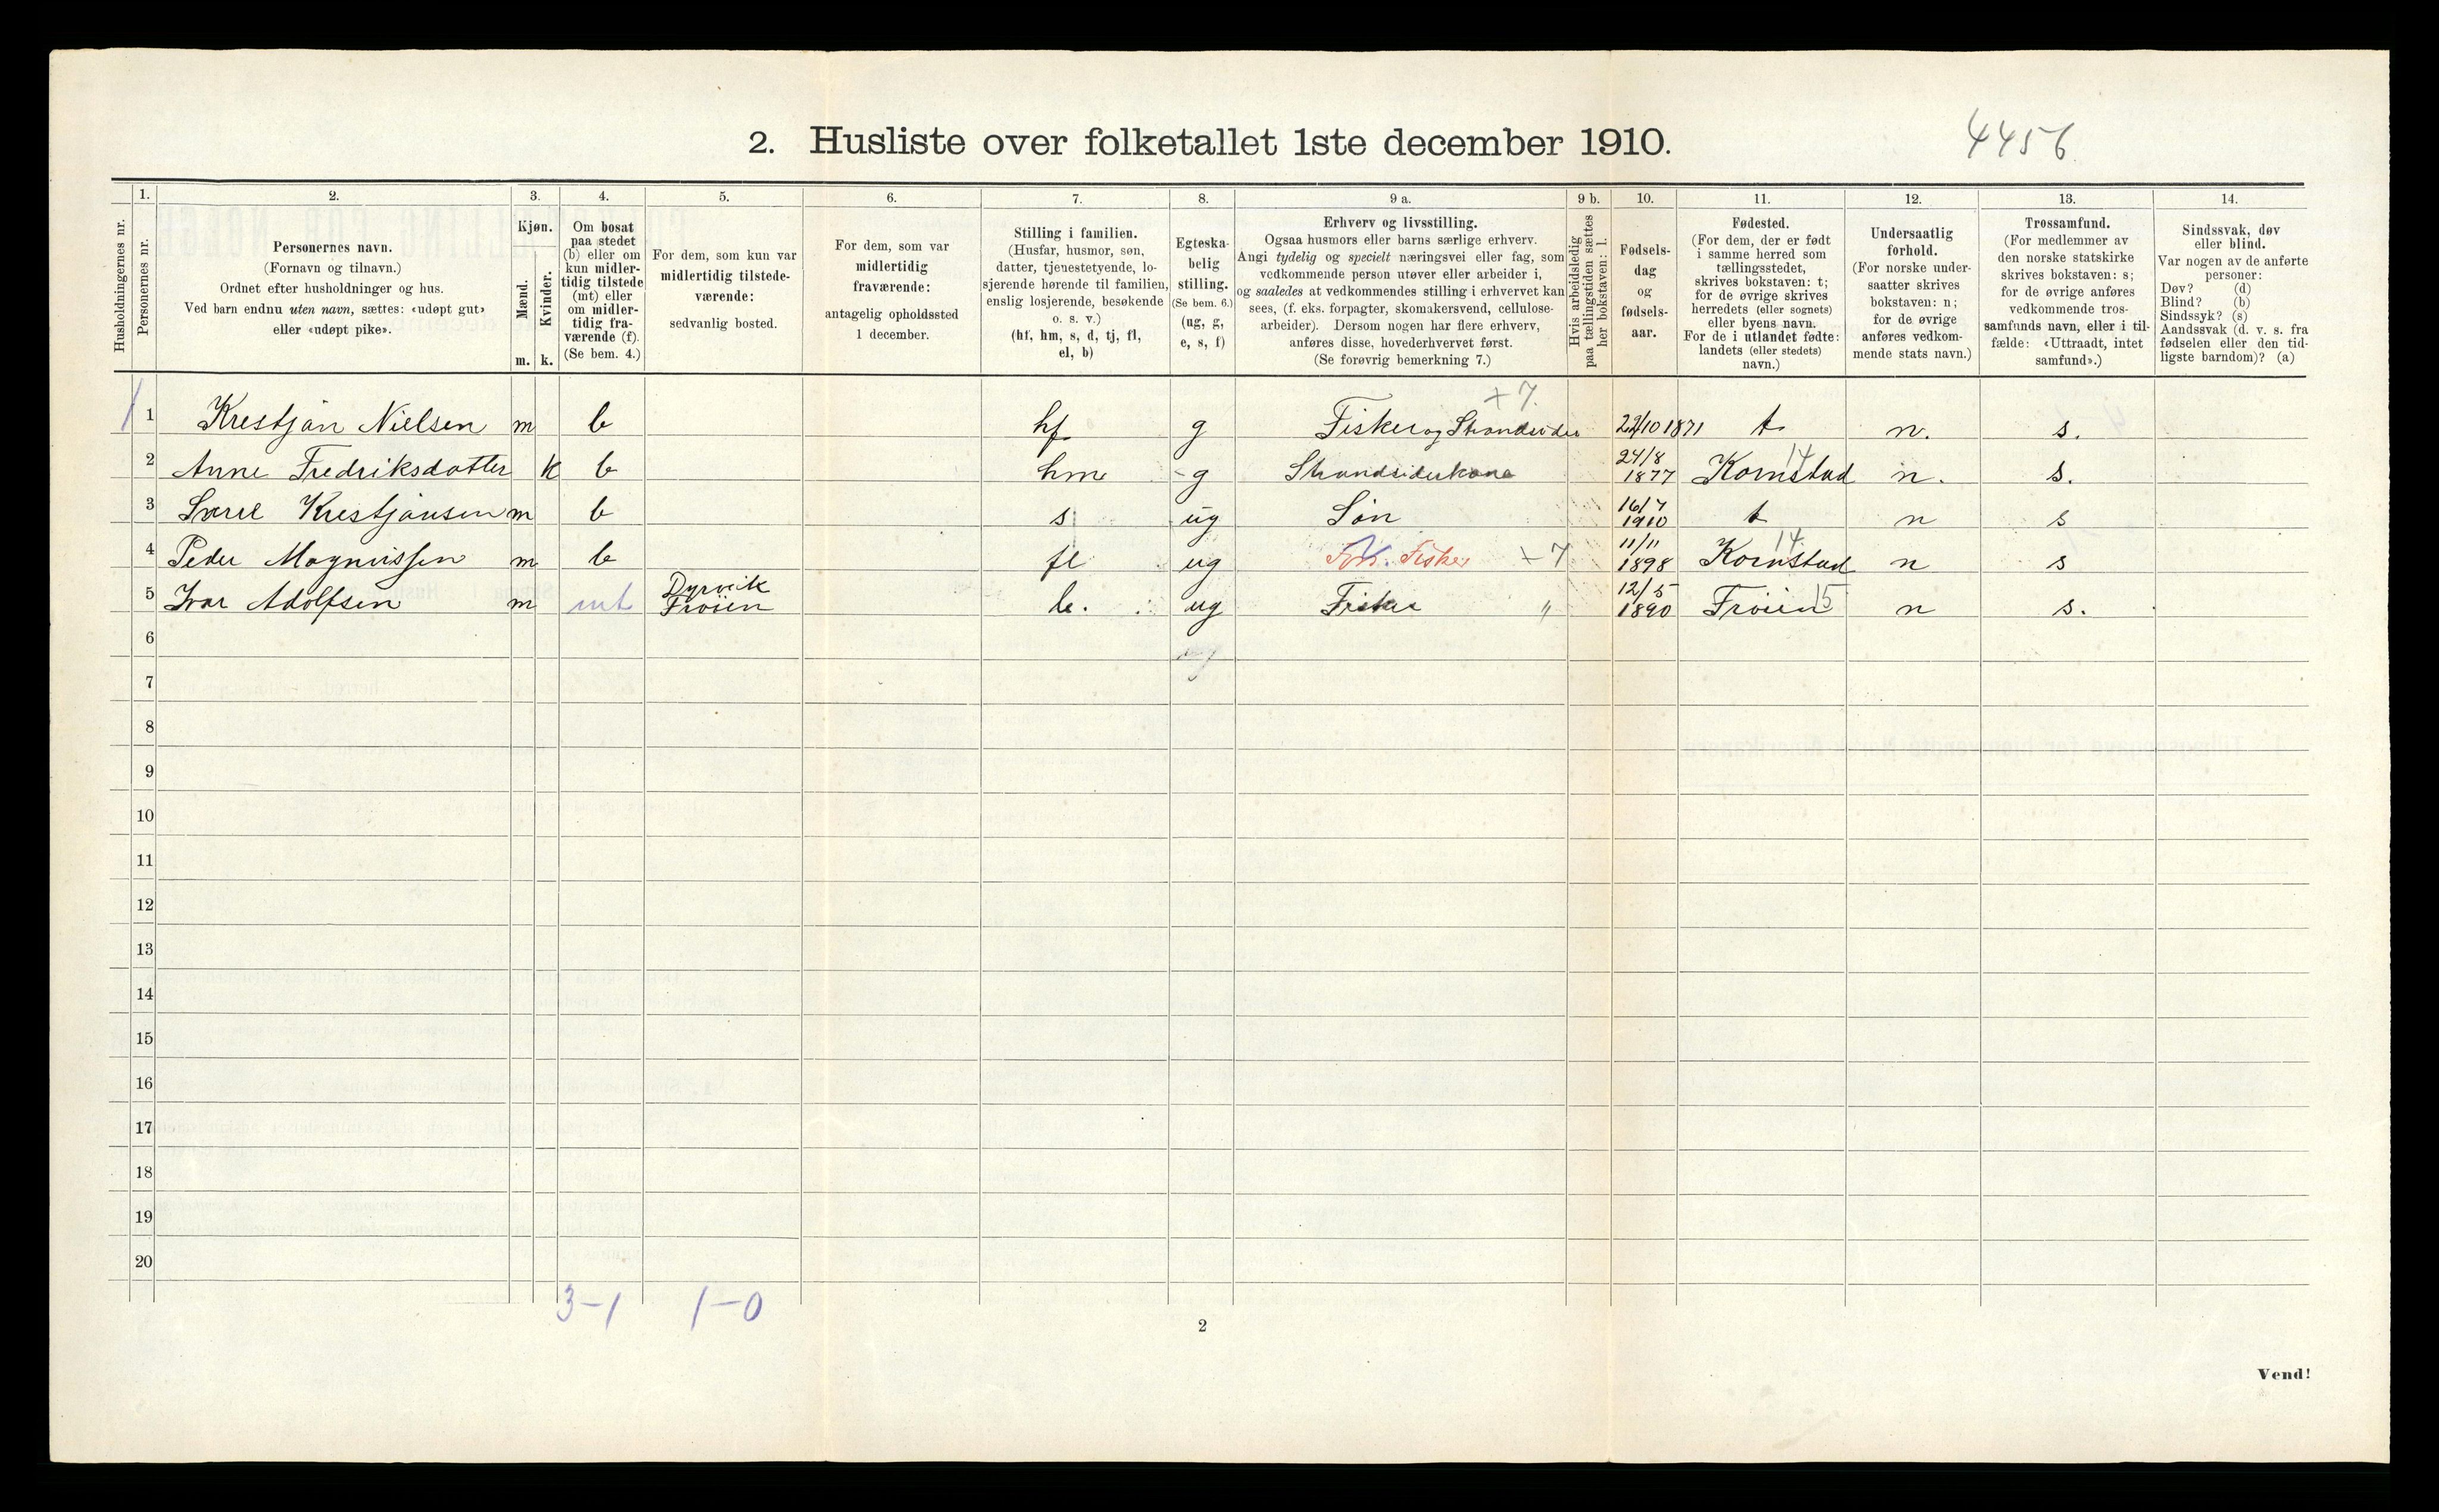 2. Husliste over folketallet 1ste december 1910.
4456
1. 2. 3. 4. 5. 6. 7. 8. 9 a. 9 b. 10. 11. 12. 13. 14.
Husholdningernes nr.
Personernes nr.
Personernes navn.
(Fornavn og tilnavn.)
Ordnet efter husholdninger og hus.
Ved barn endnu uten navn, sættes: «udøpt gut»
eller «udøpt pike».
Kjøn.
Mænd.
Kvinder.
m. k.
Om bosat
paa stedet
(b) eller om
kun midler-
tidig tilstede
(mt) eller
om midler-
tidig fra-
værende (f).
(Se bem. 4.)
For dem, som kun var
midlertidig tilstede-
værende:
sedvanlig bosted.
For dem, som var
midlertidig
fraværende:
antagelig opholdssted
1 december.
Stilling i familien.
(Husfar, husmor, søn,
datter, tjenestetyende, lo-
sjerende hørende til familien,
enslig losjerende, besøkende
o. s. v.)
(hf, hm, s, d, tj, fl,
el, b)
Egteska-
belig
stilling.
(Se bem. 6.)
(ug, g,
e, s, f)
Erhverv og livsstilling.
Ogsaa husmors eller barns særlige erhverv.
Angi tydelig og specielt næringsvei eller fag, som
vedkommende person utøver eller arbeider i,
og saaledes at vedkommendes stilling i erhvervet kan
sees, (f. eks. forpagter, skomakersvend, cellulose-
arbeider). Dersom nogen har flere erhverv,
anføres disse, hovederhvervet først.
(Se forøvrig bemerkning 7.)
Hvis arbeidsledig
paa tællingstiden sættes
her bokstaven: l.
Fødsels-
dag
og
fødsels-
aar.
Fødested.
(For dem, der er født
i samme herred som
tællingsstedet,
skrives bokstaven: t;
for de øvrige skrives
herredets (eller sognets)
eller byens navn.
For de i utlandet fødte:
landets (eller stedets)
navn.)
Undersaatlig
forhold.
(For norske under-
saatter skrives
bokstaven: n;
for de øvrige
anføres vedkom-
mende stats navn.)
Trossamfund.
(For medlemmer av
den norske statskirke
skrives bokstaven: s;
for de øvrige anføres
vedkommende tros-
samfunds navn, eller i til-
fælde: «Uttraadt, intet
samfund».)
Sindssvak, døv
eller blind.
Var nogen av de anførte
personer:
Døv? (d)
Blind? (b)
Sindssyk? (s)
Aandssvak (d. v. s. fra
fødselen eller den tid-
ligste barndom)? (a)
+7.
1 1 Krestjan Nielsen m b hf g Fisker og Strandsider 22/10 1871 t n. s.
2 Anne Fredriksdatter k b hm g Strandsiderkone 24/8 1877 Kornstad 14 n. s.
3 Krestjansen m b s ug Søn 16/7 1910 t n s
4 Peder Magnussen m b fl ug Fisker +7 11/11 1898 Kornstad 14. n s
5 Ivar Adolfsen m mt Dyrvik Frøien b. ug Fisker " 12/5 1890 Frøien 15 n s.
6
7
8
9
10
11
12
13
14
15
16
17
18
19
20
3-1 1-0
2
Vend!